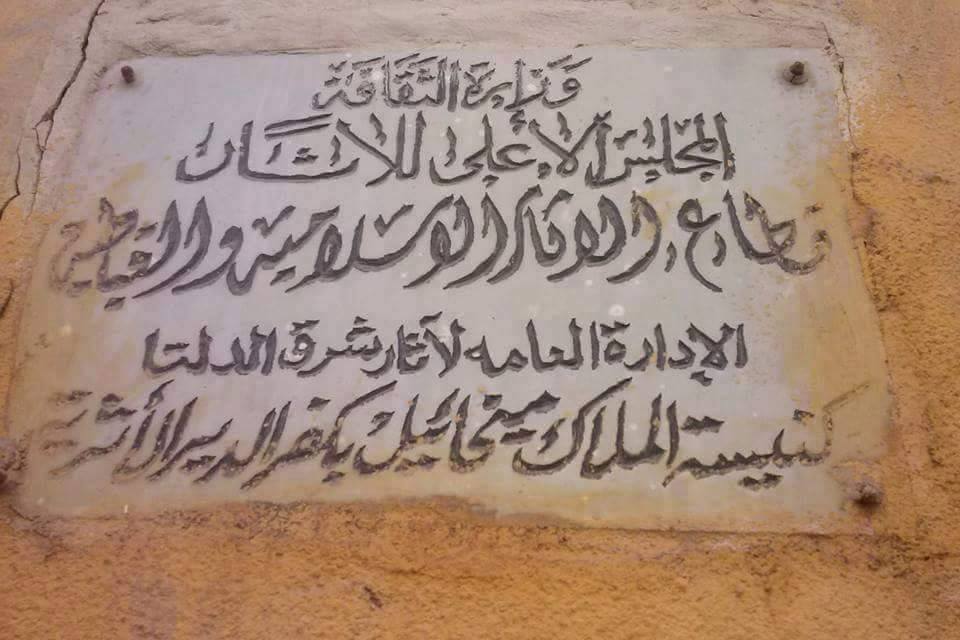 وزارة الثقافة
المجلس الاعلى للاثار
قطاع الاثار الاسلامية والقبطية
الإدارة العامه لآثار شرق الدلتا
كنيسة الملاك ميخائيل بكفر الدير الأثرية